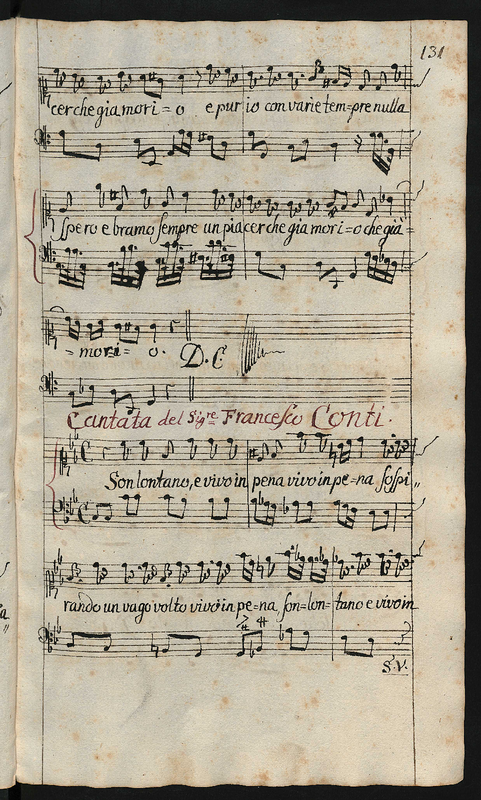 131
cer che gia mori = o e pur io con varie tem=pre nulla
Spero e bramo sempre un piacer che gia mori = o che gia =
= mori = o. D. C.
Cantata del Sigre. Francesco Conti.
Son lontano, e vivo in pena vivo in pe = na sospi„
rando un vago volto vivo in pe = na, son = lon = tano e vivo in
7 #
S. V.